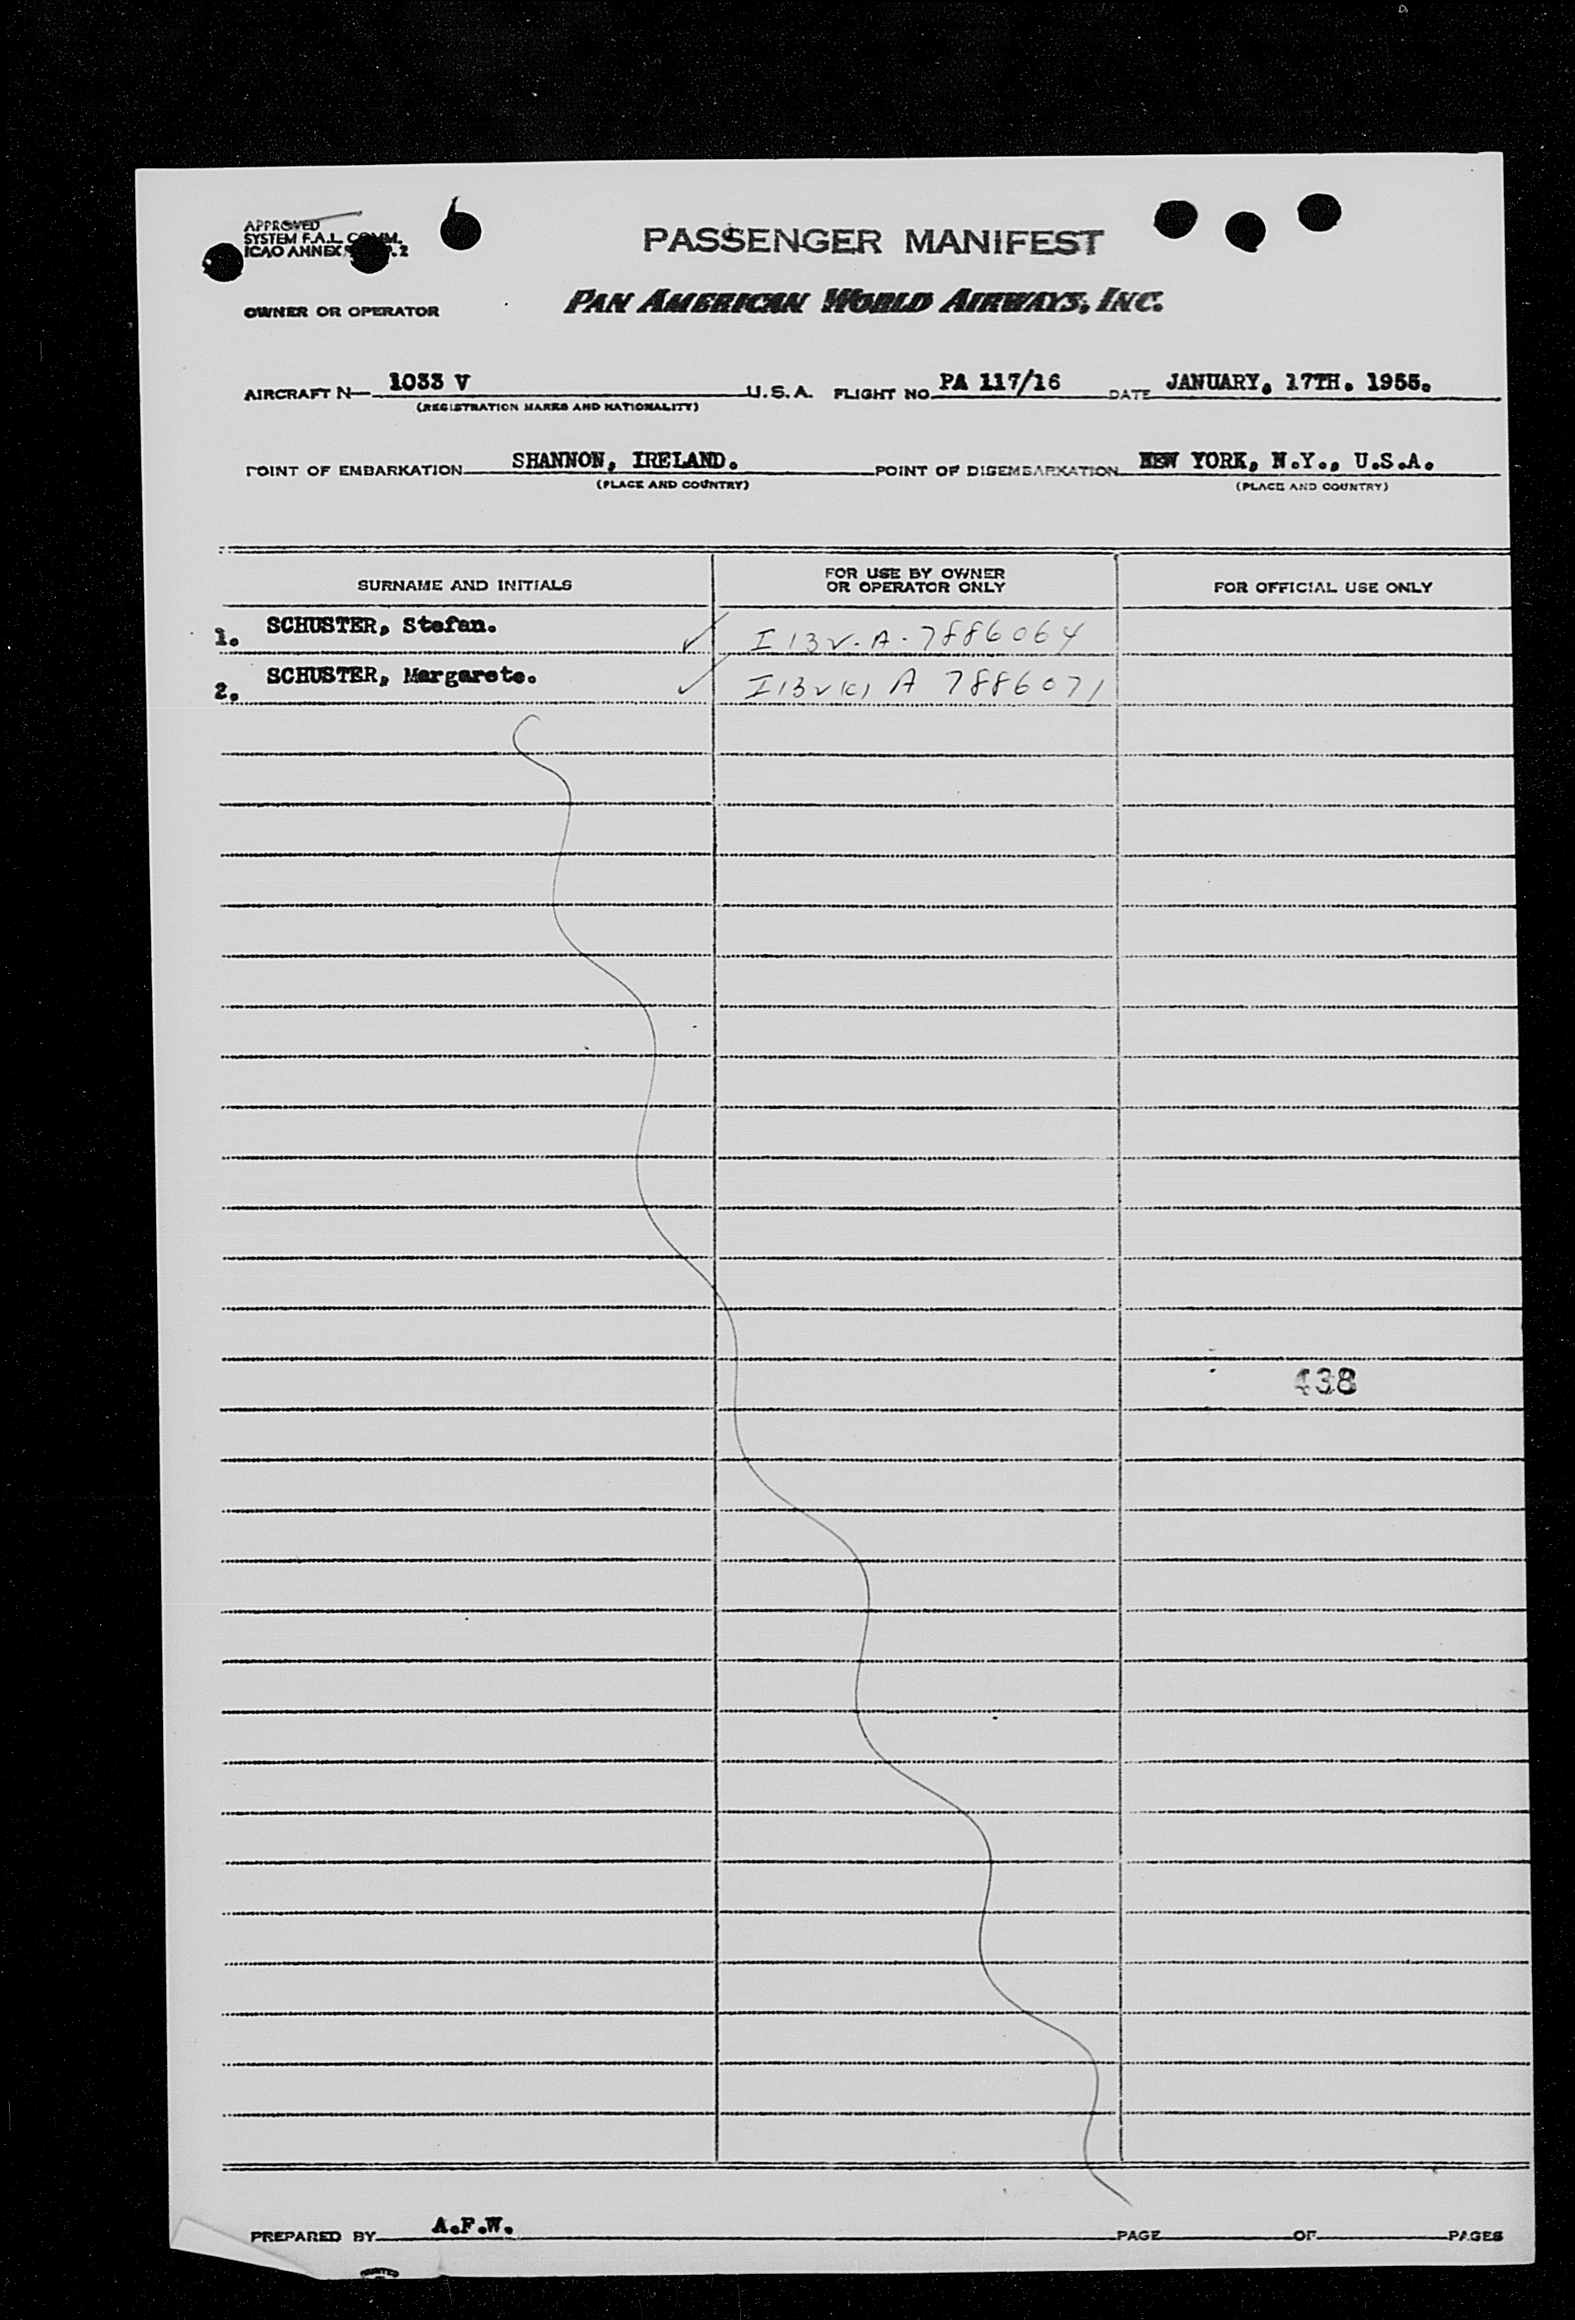 APPROVED
SYSTEM F.A.L. COMM.
ICAO ANNEX
PASSENGER MANIFEST
OWNER OR OPERATOR
PAN AMERICAN WORLD AIRWAYS, INC.
AIRCRAFT N— 1033 V U.S.A. FLIGHT NO. PA 117/16 DATE JANUARY. 17TH. 1955.
(REGISTRATION MARKS AND NATIONALITY)
POINT OF EMBARKATION SHANNON, IRELAND. POINT OF DISEMBARKATION NEW YORK, N.Y., U.S.A.
(PLACE AND COUNTRY) (PLACE AND COUNTRY)
SURNAME AND INITIALS FOR USE BY OWNER OR OPERATOR ONLY FOR OFFICIAL USE ONLY
1. SCHUSTER, Stefan. ✓ I 13 V. A. 7886064
2. SCHUSTER, Margarete. ✓ A 7886071
438
PREPARED BY A.F.W. PAGE OF PAGES
PRINTED